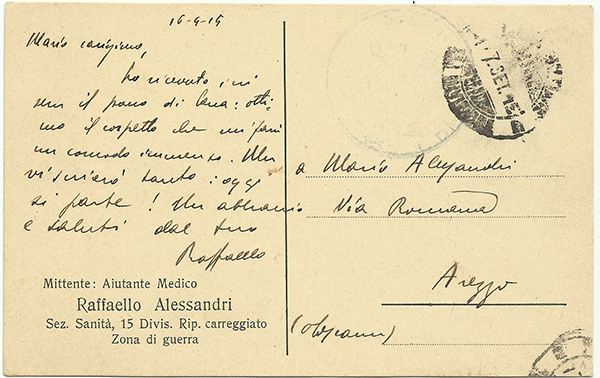 16-9-15
Mario carissimo,
ho ricevuto ieri
sera il pacco di lana: otti-
mo il corpetto che mi farà
un comodo immenso.
vi scriverò tanto: oggi
si parte! Un abbraccio
e saluti dal tuo
Raffaello
Mittente: Aiutante Medico
Raffaello Alessandri
Sez. Sanità, 15 Divis. Rip. carreggiato
Zona di guerra
7. SET. 15
a Mario Alessandri
Via Romana
Arezzo
(Toscana)